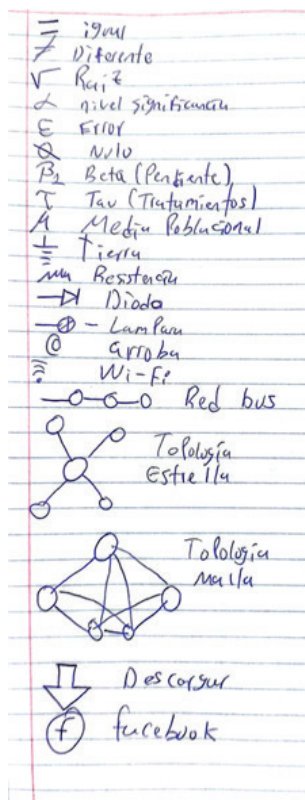 = igual
≠ Diferente
√ Raiz
α nivel significancia
ε Error
Ø Nulo
β₁ Beta (Pendiente)
τ Tau (Tratamientos)
μ Media Poblacional
Tierra
Resstencia
Diodo
Lampara
@ arroba
Wi-Fi
Red bus
Topología
Estrella
Topología
malla
Descargar
f facebook